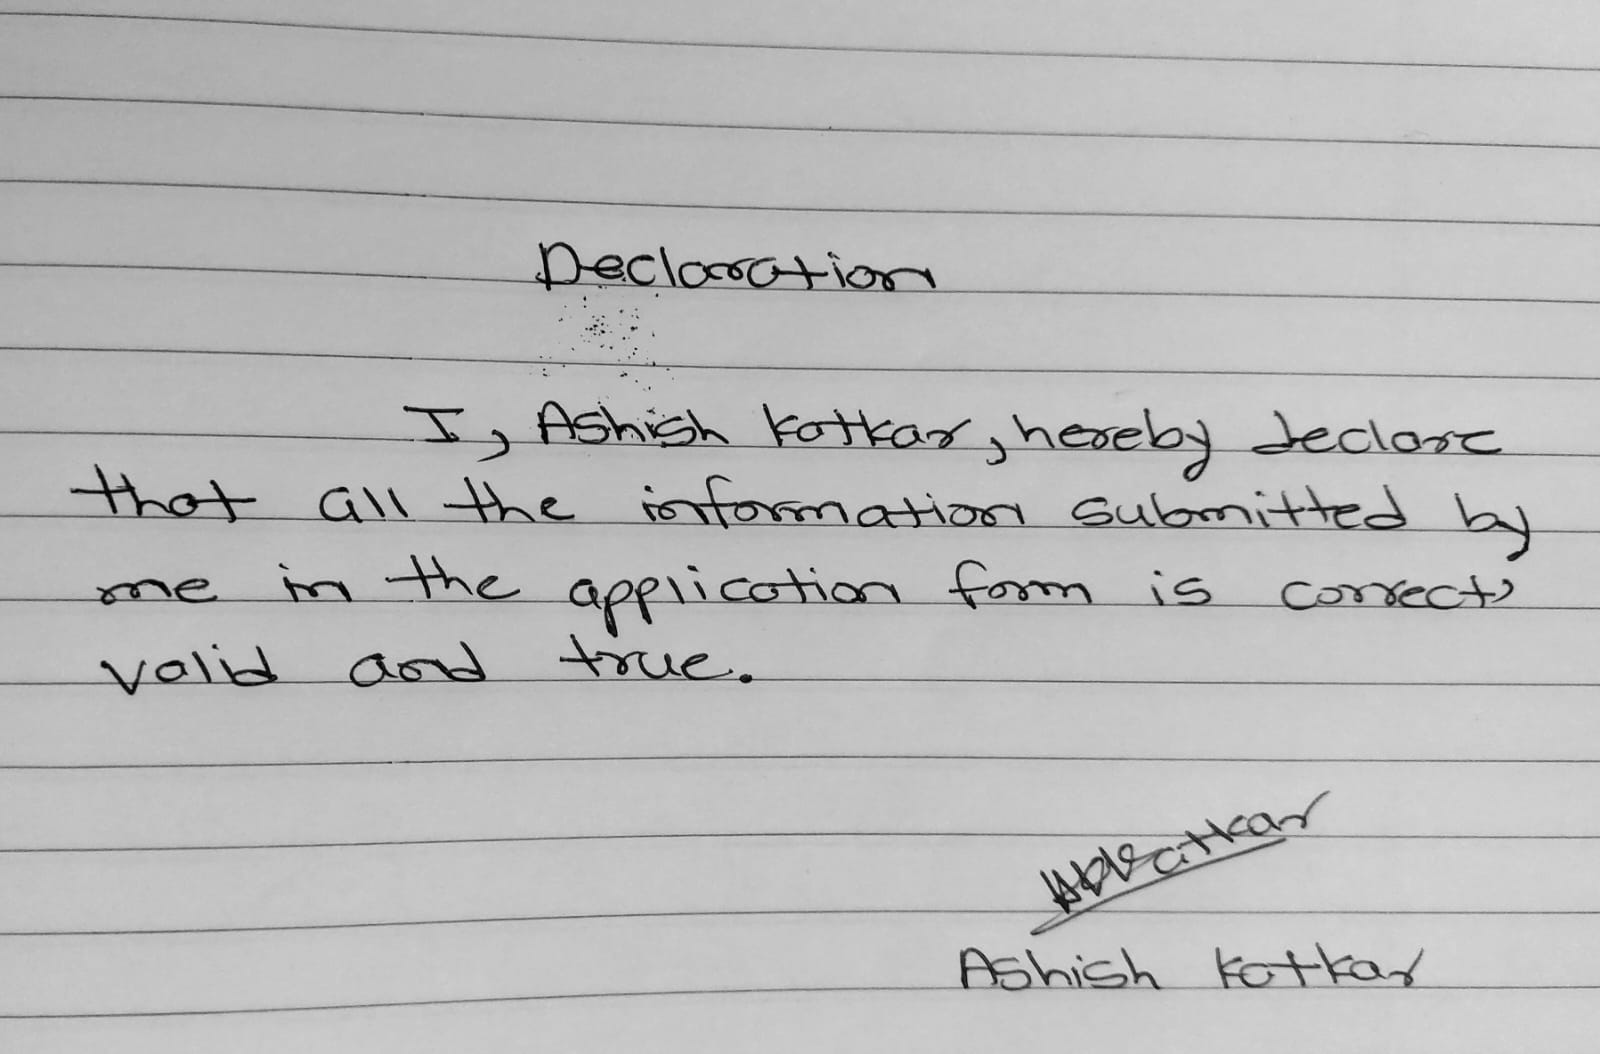 Declaration
I, Ashish Kotkar, hereby declare
that all the information submitted by
me in the application form is correct,
valid and true.
Ashish Kotkar